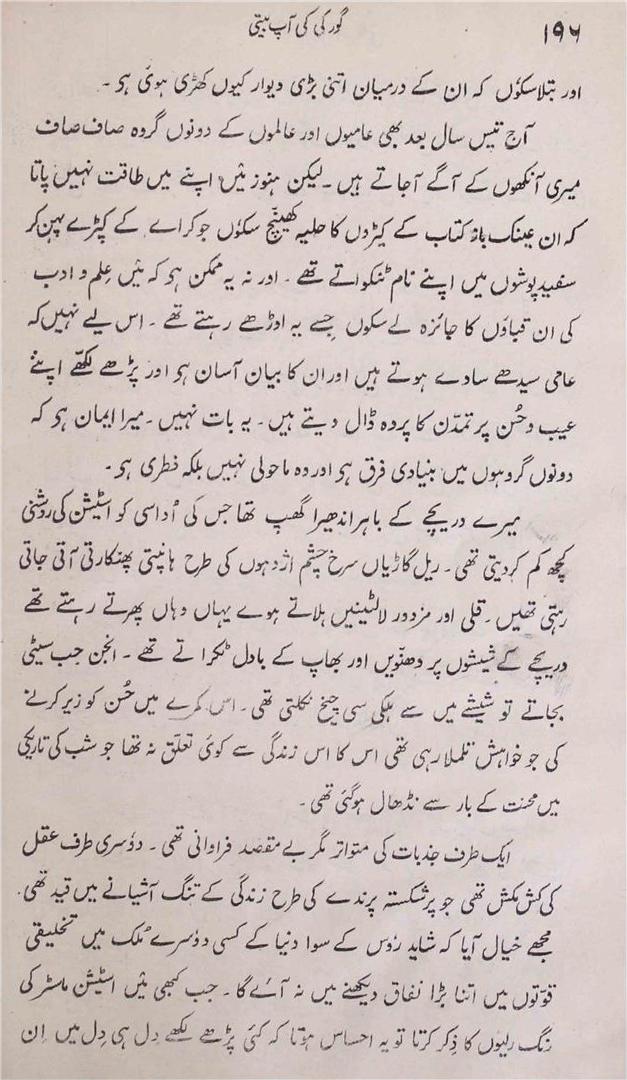 ۱۹۶
گورکی کی آپ بیتی
اور بتلا سکوٗں کہ ان کے درمیان اتنی بڑی دیوار کیوں کھڑی ہوئی ہو ۔
آج تیس سال بعد بھی عامیوں اور عالموں کے دونوں گروہ صاف صاف
میری آنکھوں کے آگے آ جاتے ہیں ۔ لیکن ہنوز مَیں اپنے میں طاقت نہیں پاتا
کہ ان عینک باز کتاب کے کیڑوں کا حلیہ کھینچ سکوٗں جو کراے کے کپڑے پہن کر
سفید پوشوں میں اپنے نام ٹنکواتے تھے ۔ اور نہ یہ ممکن ہو کہ مَیں عِلم و ادب
کی ان قباؤں کا جائزہ لے سکوں جِسے یہ اوڑھے رہتے تھے ۔ اس لیے نہیں کہ
عامی سیدھے سادے ہوتے ہیں اور ان کا بیان آسان ہو اور پڑھے لکھّے اپنے
عیب و حُسن پر تمدّن کا پردہ ڈال دیتے ہیں ۔ یہ بات نہیں ۔ میرا ایمان ہو کہ
دونوں گروہوں میں بنیادی فرق ہو اور وہ ماحولی نہیں بلکہ فطری ہو ۔
میرے دریچے کے باہر اندھیرا گھپ تھا جس کی اُداسی کو اسٹیشن کی روشنی
کچھ کم کر دیتی تھی ۔ ریل گاڑیاں سرخ چشم اژدہوں کی طرح ہانپتی پھنکارتی آتی جاتی
رہتی تھیں ۔ قلی اور مزدور لالٹینیں ہلاتے ہوے یہاں وہاں پھرتے رہتے تھے
دریچے کے شیشوں پر دھنّویں اور بھاپ کے بادل ٹکراتے تھے ۔ انجن جب سیٹی
بجاتے تو شیشے میں سے ہلکی سی چیخ نکلتی تھی ۔ اس کمرے میں حُسن کو زیر کرنے
کی جو خواہش تلملا رہی تھی اس کا اس زندگی سے کوئی تعلّق نہ تھا جو شب کی تاریکی
میں محنت کے بار سے نڈھال ہو گئی تھی ۔
ایک طرف جذبات کی متواتر مگر بے مقصد فراوانی تھی ۔ دوٗسری طرف عقل
کی کش مکش تھی جو پر شکستہ پرندے کی طرح زندگی کے تنگ آشیانے میں قید تھی ۔
مجھے خیال آیا کہ شاید روٗس کے سوا دنیا کے کسی دوٗسرے مُلک میں تخلیقی
قوّتوں میں اتنا بڑا نفاق دیکھنے میں نہ آئے گا ۔ جب کبھی مَیں اسٹیشن ماسٹر کی
رنگ رلیوں کا ذِکر کرتا تو یہ احساس ہوتا کہ کئی پڑھے لکھے دِل ہی دِل میں اِن